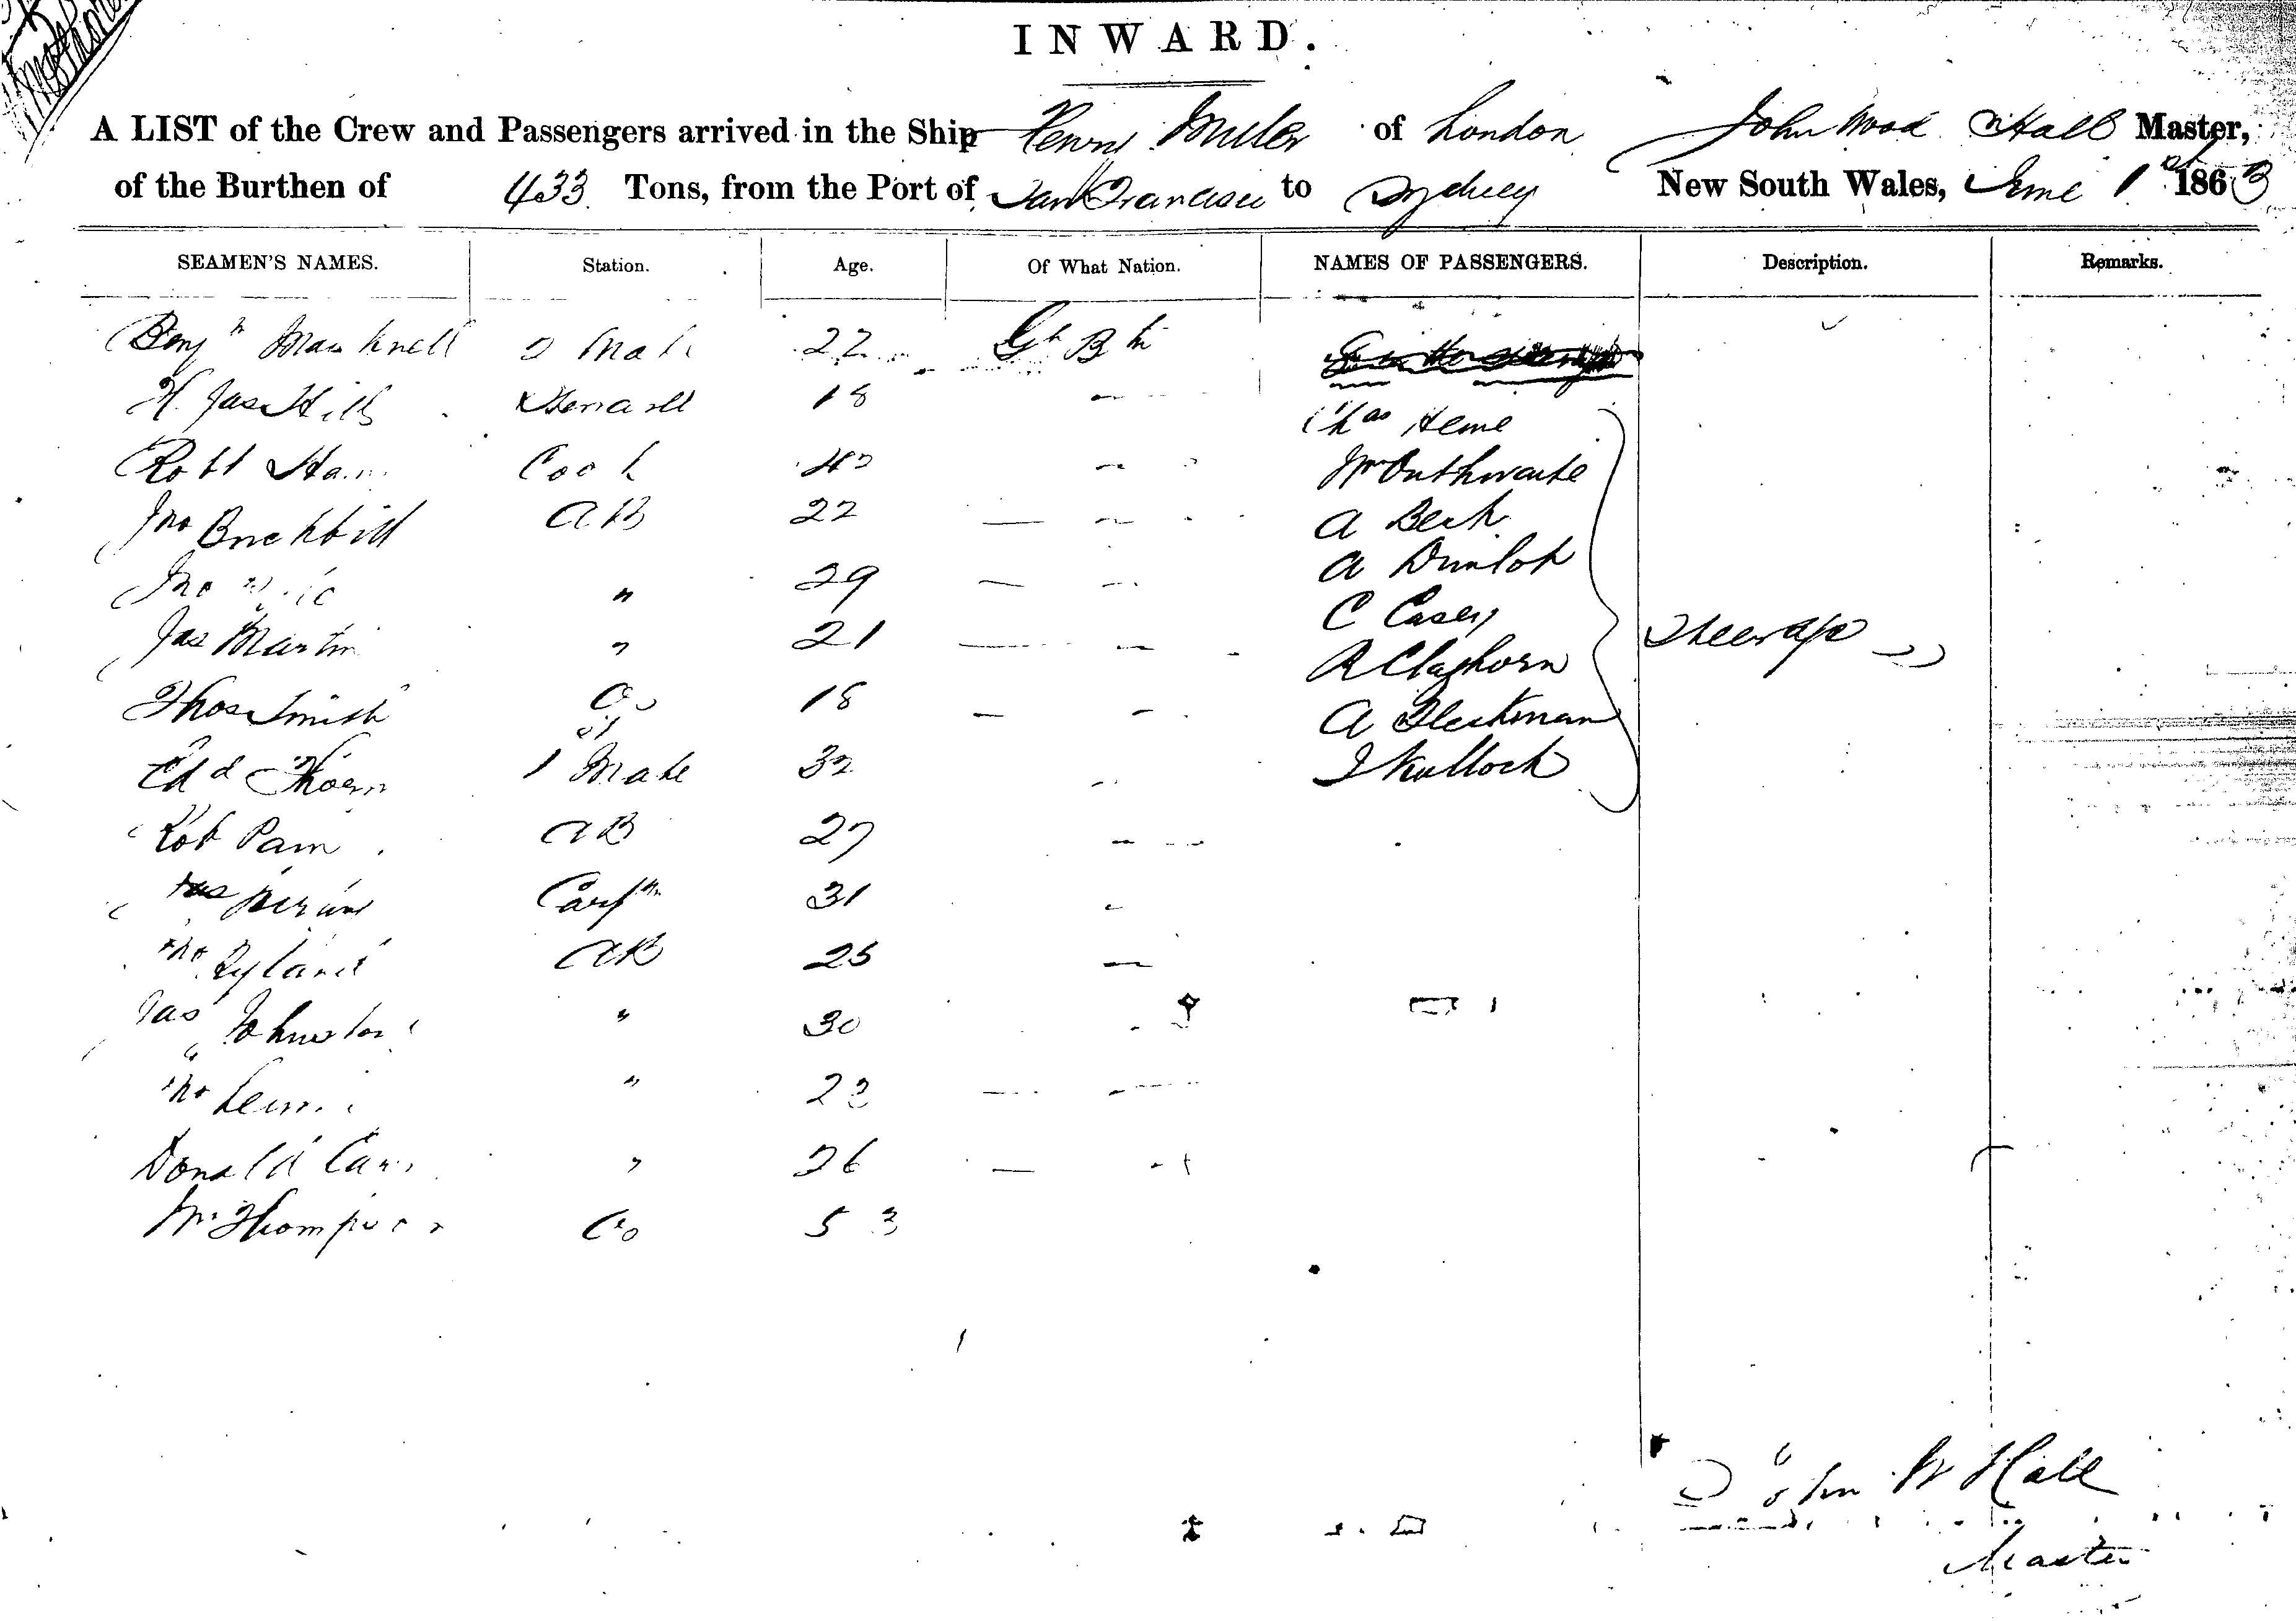 INWARD.
A LIST of the Crew and Passengers arrived in the Ship Henry Miller of London John Wood Hall Master,
of the Burthen of 433 Tons, from the Port of San Francisco to Sydney New South Wales, June 1st 1863
SEAMEN'S NAMES. Station. Age. Of What Nation. NAMES OF PASSENGERS. Description. Remarks.
Benjn 2 Mate 22 Gt Bn
H. Jas Hills Steward 18 Chas Heme
Robt Cook Wm Outhwaite
Jno Brickhill AB 22 A Beck
Jno " 29 A Dunlop
Jas Martin " 21 C Casey Steerage
R Claghorn
Thos Smith 18 A
Edd Thorn 1 Mate 32 J Kullock
Rob Pam AB 27
Carptr 31
Jno Ryland AB 25
Jas Johnston " 30
Jno "
Donald " 26
Wm Thompson 53
John W Hall
Master